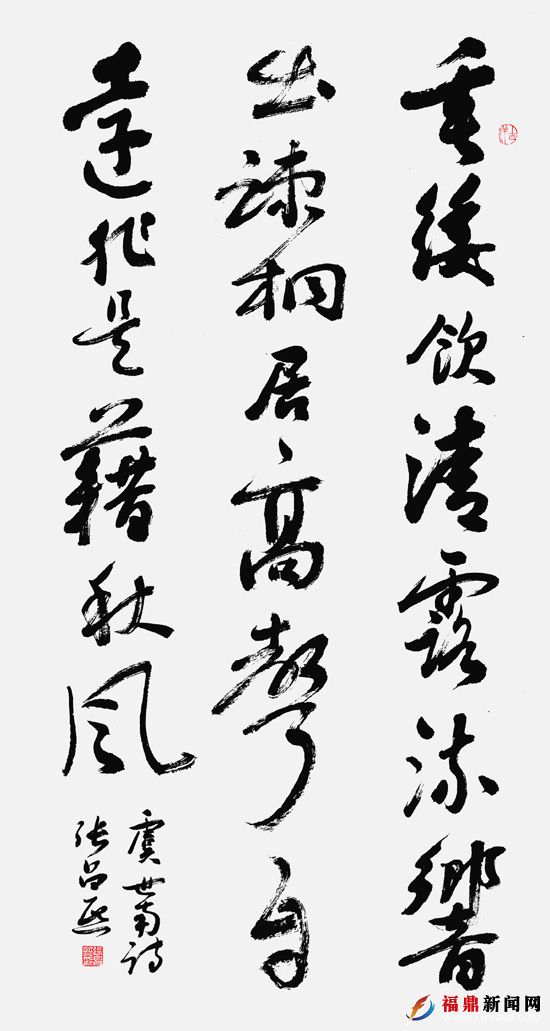 垂緌飲清露流響
出疎桐居高聲自
遠非是藉秋風
虞世南詩
福鼎新闻网